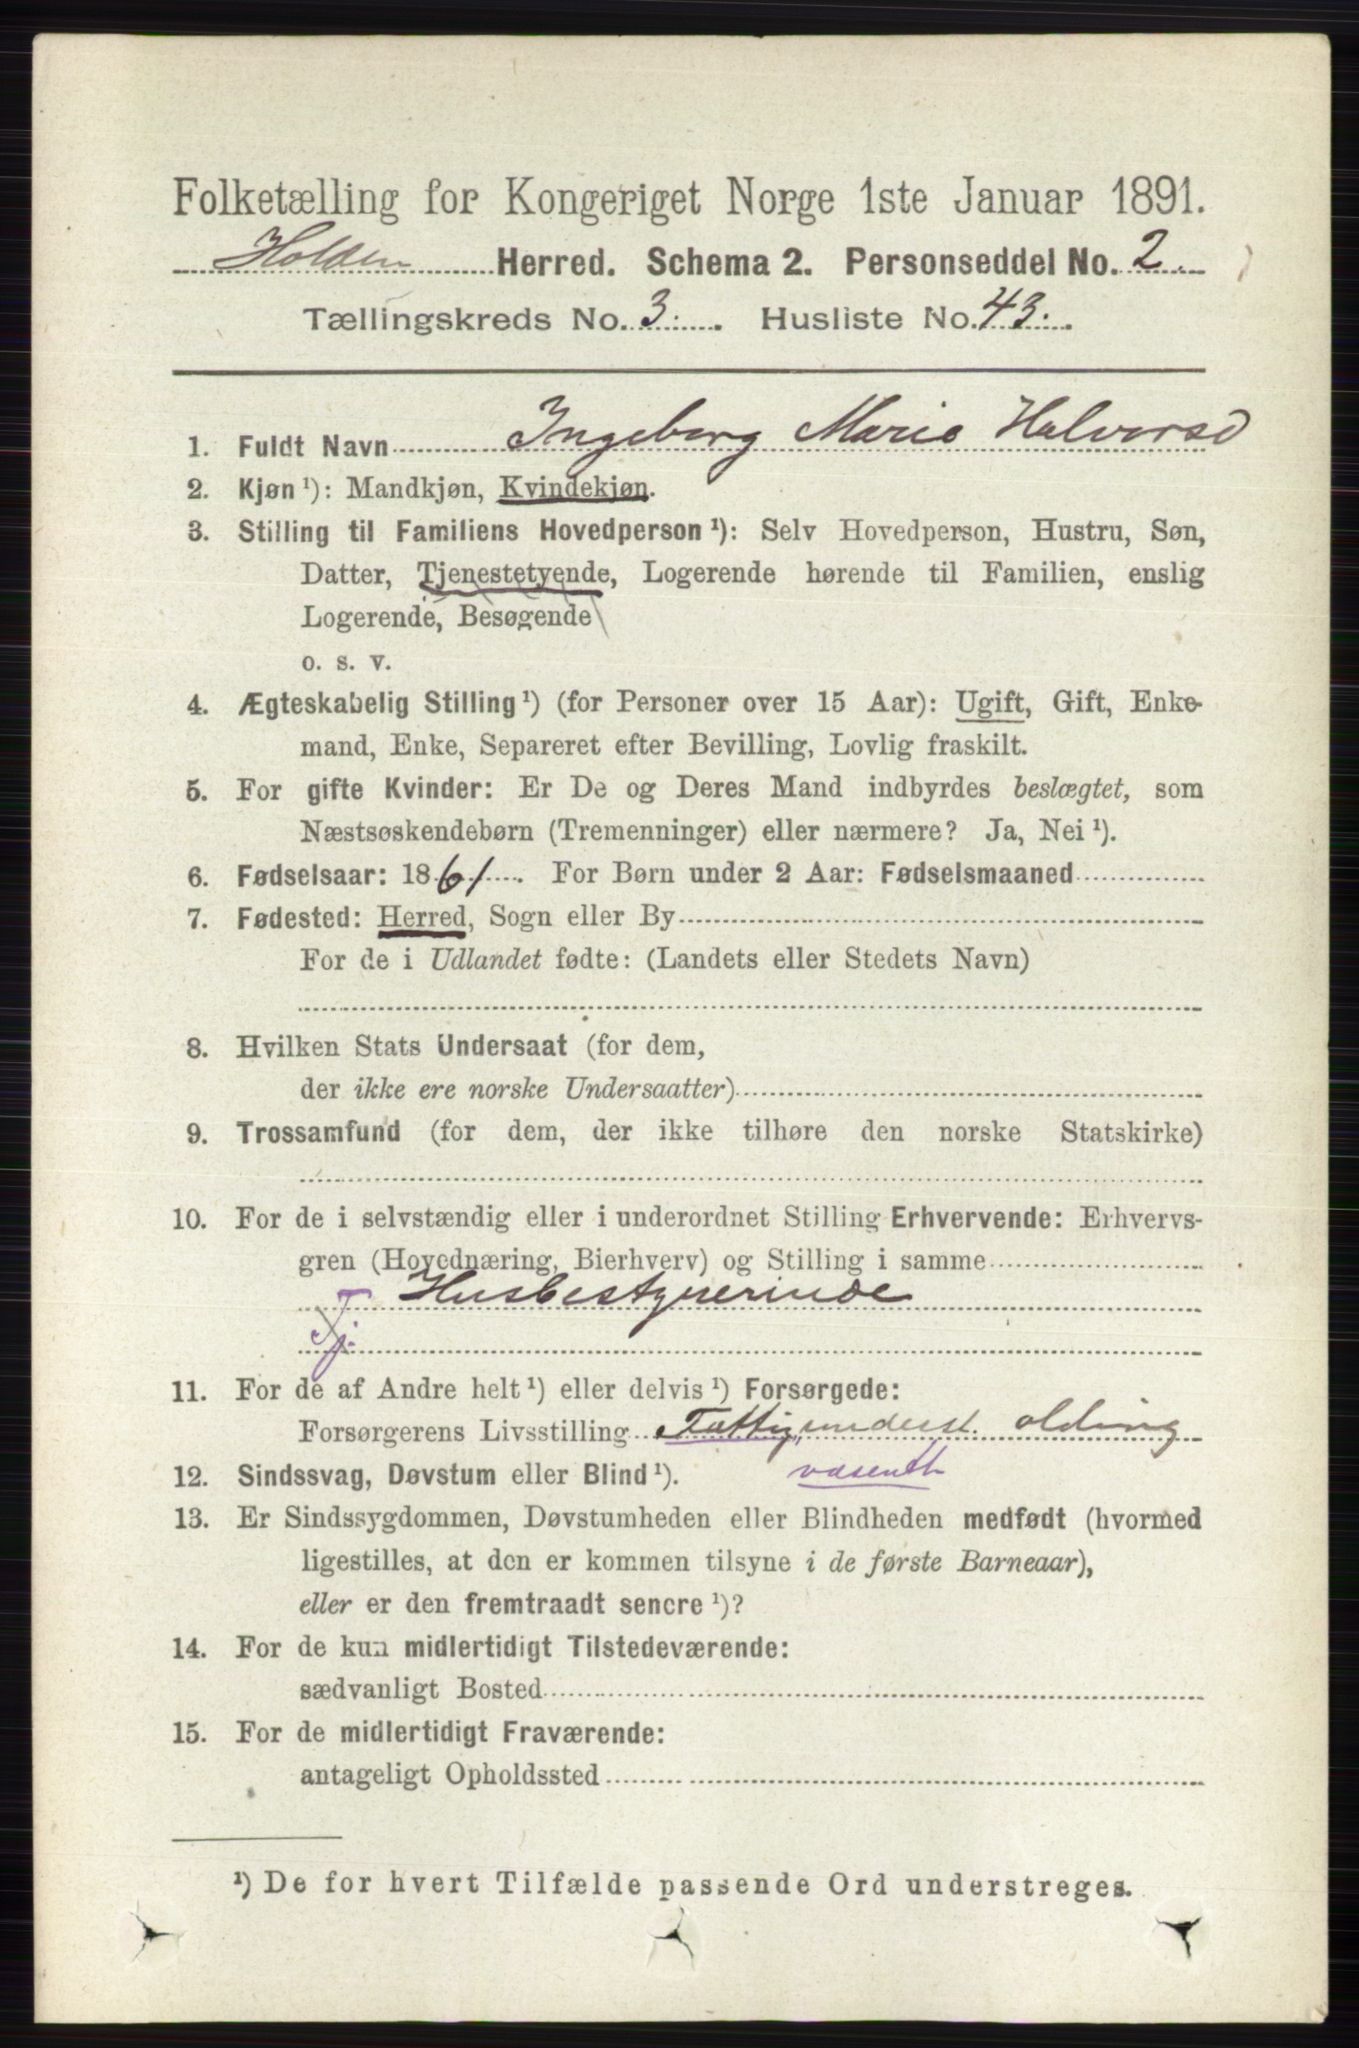 Folketælling for Kongeriget Norge 1ste Januar 1891.
Holden Herred. Schema 2. Personseddel No. 2.
Tællingskreds No. 3. Husliste No. 43.
1. Fuldt Navn Ingeborg Marie Halvorsd
2. Kjøn ¹): Mandkjøn, Kvindekjøn.
3. Stilling til Familiens Hovedperson ¹): Selv Hovedperson, Hustru, Søn,
Datter, Tjenestetyende, Logerende hørende til Familien, enslig
Logerende, Besøgende
o. s. v.
4. Ægteskabelig Stilling ¹) (for Personer over 15 Aar): Ugift, Gift, Enke-
mand, Enke, Separeret efter Bevilling, Lovlig fraskilt.
5. For gifte Kvinder: Er De og Deres Mand indbyrdes beslægtet, som
Næstsøskendebørn (Tremenninger) eller nærmere? Ja, Nei ¹).
6. Fødselsaar: 1861. For Børn under 2 Aar: Fødselsmaaned
7. Fødested: Herred, Sogn eller By
For de i Udlandet fødte: (Landets eller Stedets Navn)
8. Hvilken Stats Undersaat (for dem,
der ikke ere norske Undersaatter)
9. Trossamfund (for dem, der ikke tilhøre den norske Statskirke)
10. For de i selvstændig eller i underordnet Stilling Erhvervende: Erhvervs-
gren (Hovednæring, Bierhverv) og Stilling i samme
Husbestyrerinde
Tj.
11. For de af Andre helt ¹) eller delvis ¹) Forsørgede:
Forsørgerens Livsstilling Fattigunderst. olding
12. Sindssvag, Døvstum eller Blind ¹). væsentl
13. Er Sindssygdommen, Døvstumheden eller Blindheden medfødt (hvormed
ligestilles, at den er kommen tilsyne i de første Barneaar),
eller er den fremtraadt senere ¹)?
14. For de kun midlertidigt Tilstedeværende:
sædvanligt Bosted
15. For de midlertidigt Fraværende:
antageligt Opholdssted
¹) De for hvert Tilfælde passende Ord understreges.